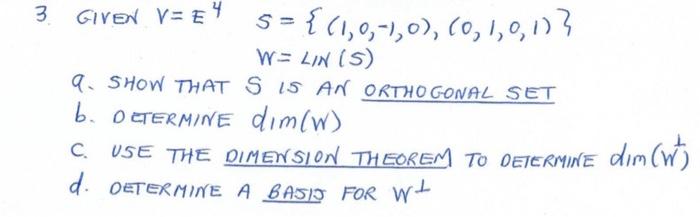 3. GIVEN V = E⁴ S = { (1,0,-1,0), (0,1,0,1) }
W = LIN (S)
a. SHOW THAT S IS AN ORTHOGONAL SET
b. DETERMINE dim(W)
C. USE THE DIMENSION THEOREM TO DETERMINE dim(W⊥)
d. DETERMINE A BASIS FOR W⊥